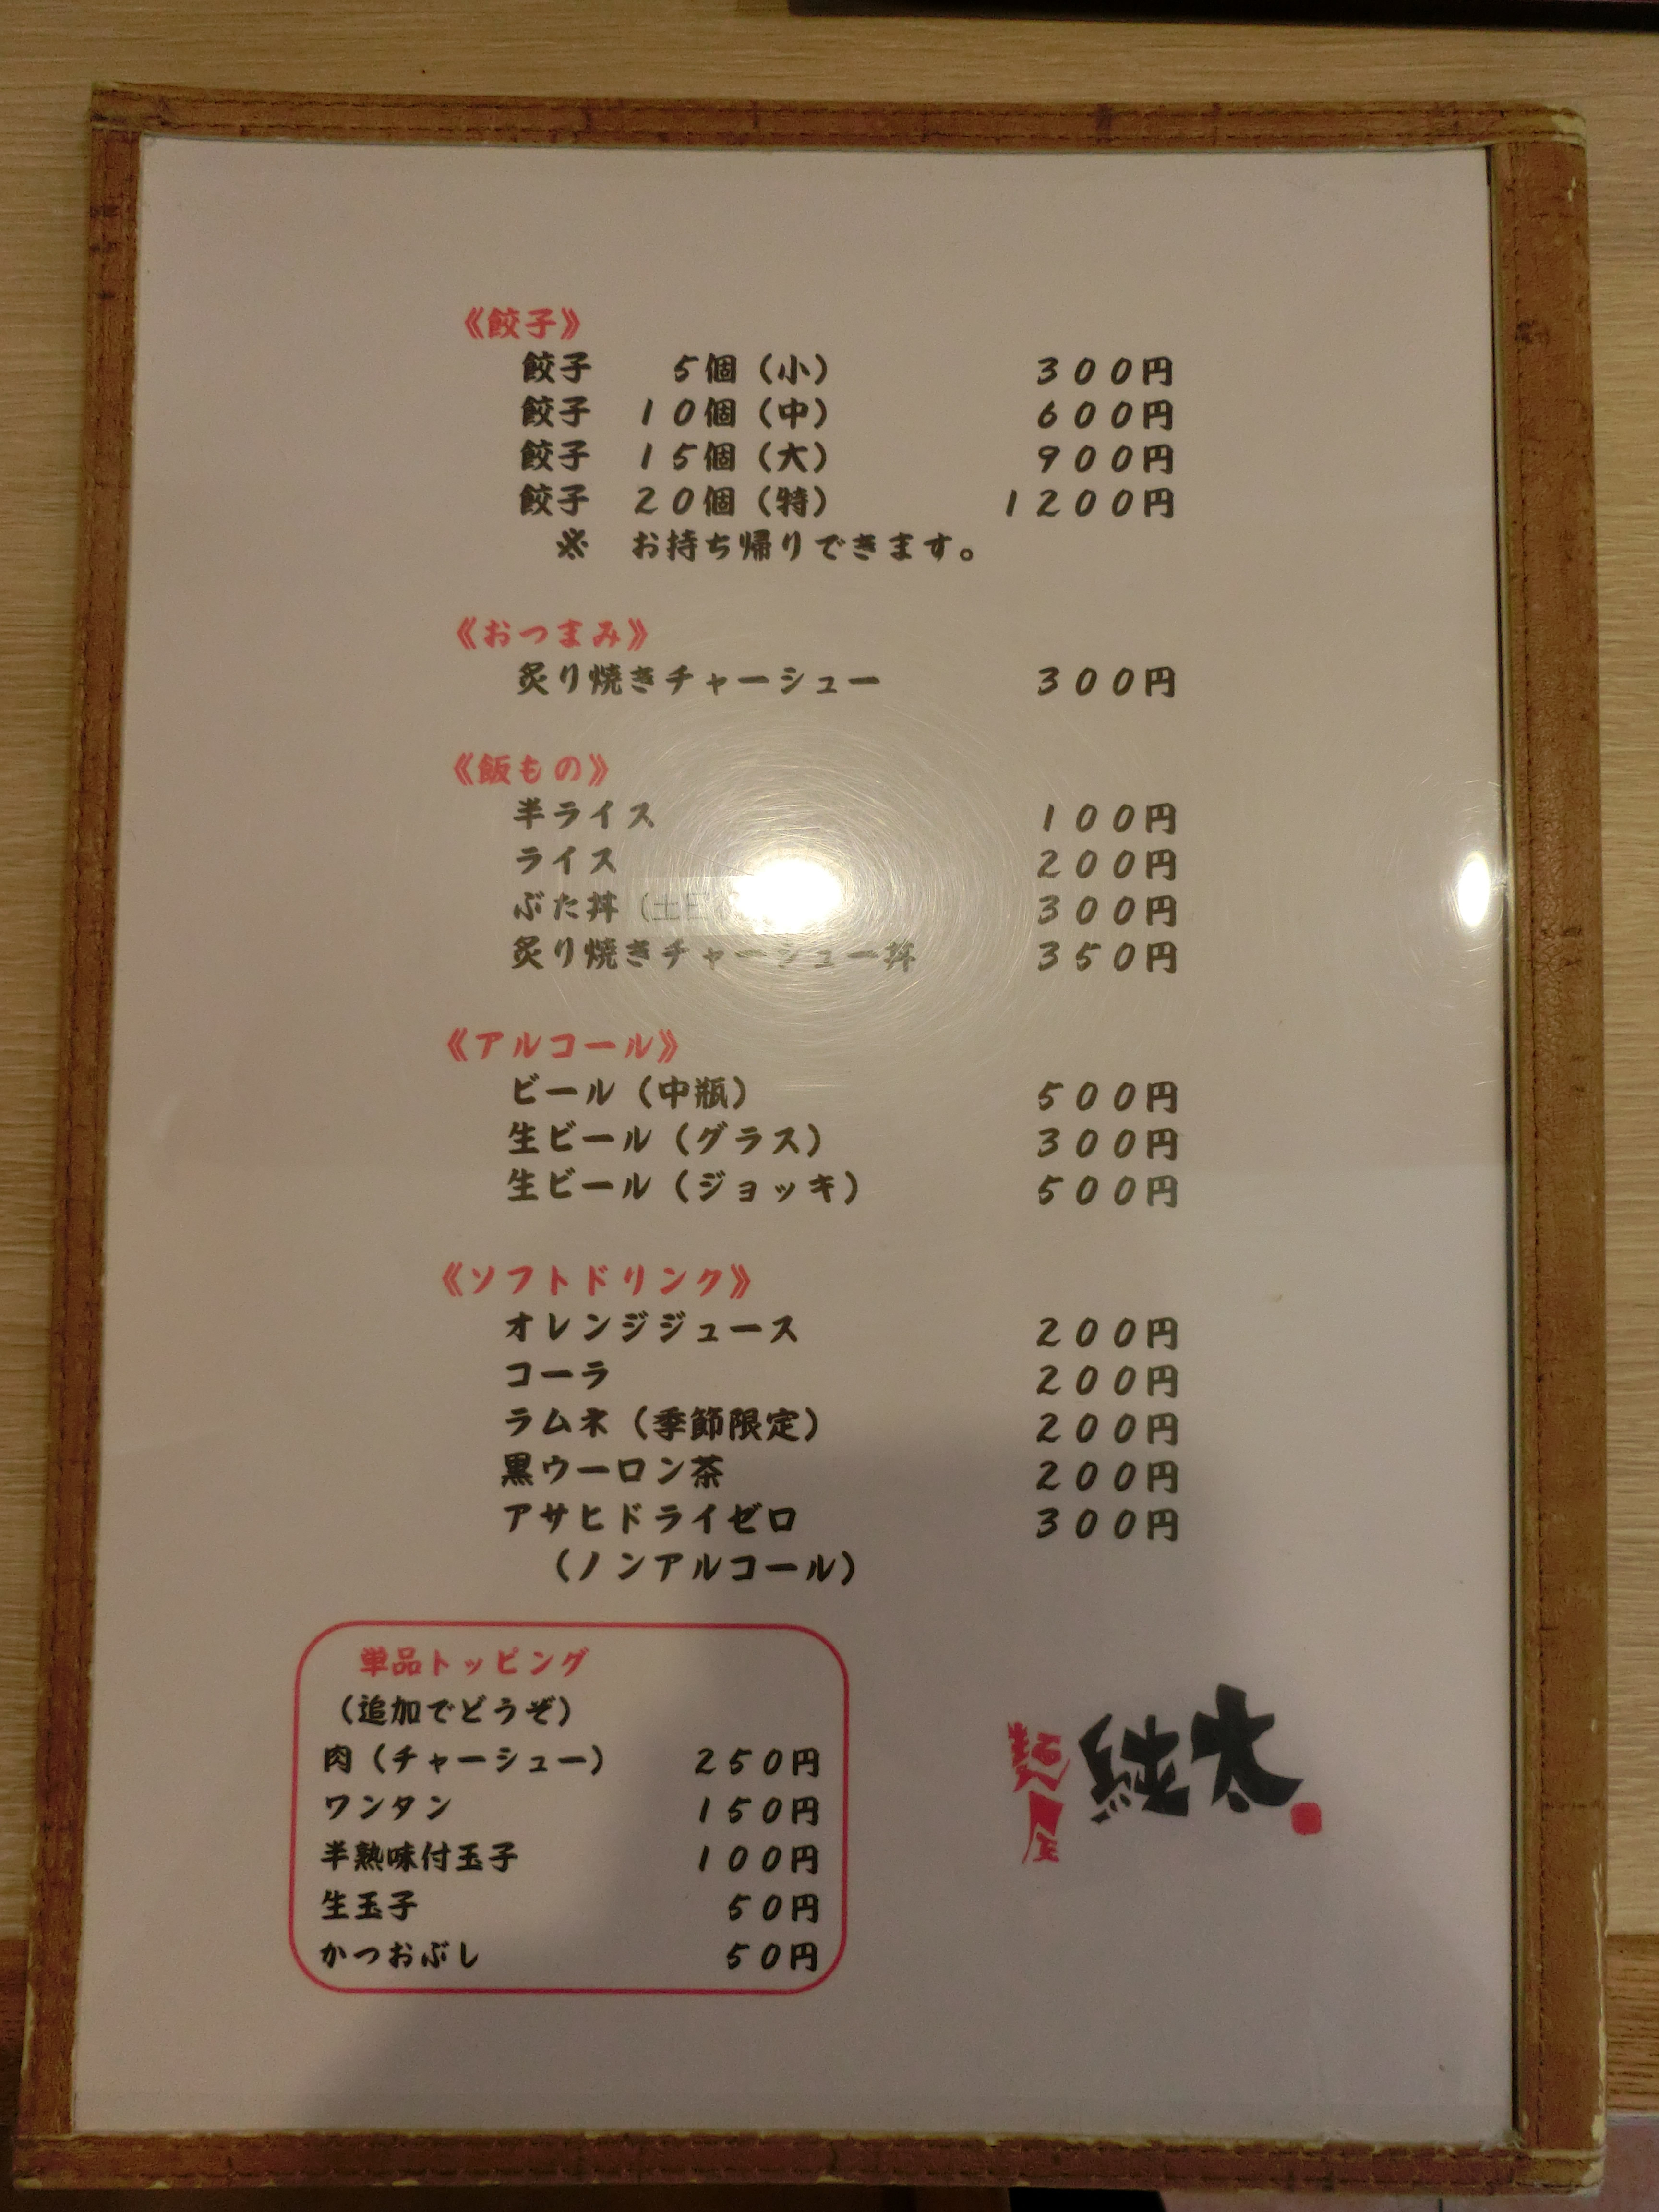 《餃子》
餃子 5個(小) 300円
餃子 10個(中) 600円
餃子 15個(大) 900円
餃子 20個(特) 1200円
※ お持ち帰りできます。
《おつまみ》
炙り焼きチャーシュー 300円
《飯もの》
半ライス 100円
ライス 200円
ぶた丼 300円
炙り焼きチャーシュー丼 350円
《アルコール》
ビール(中瓶) 500円
生ビール(グラス) 300円
生ビール(ジョッキ) 500円
《ソフトドリンク》
オレンジジュース 200円
コーラ 200円
ラムネ(季節限定) 200円
黒ウーロン茶 200円
アサヒドライゼロ 300円
(ノンアルコール)
単品トッピング
(追加でどうぞ)
肉(チャーシュー) 250円
ワンタン 150円
半熟味付玉子 100円
生玉子 50円
かつおぶし 50円
麺屋 純太